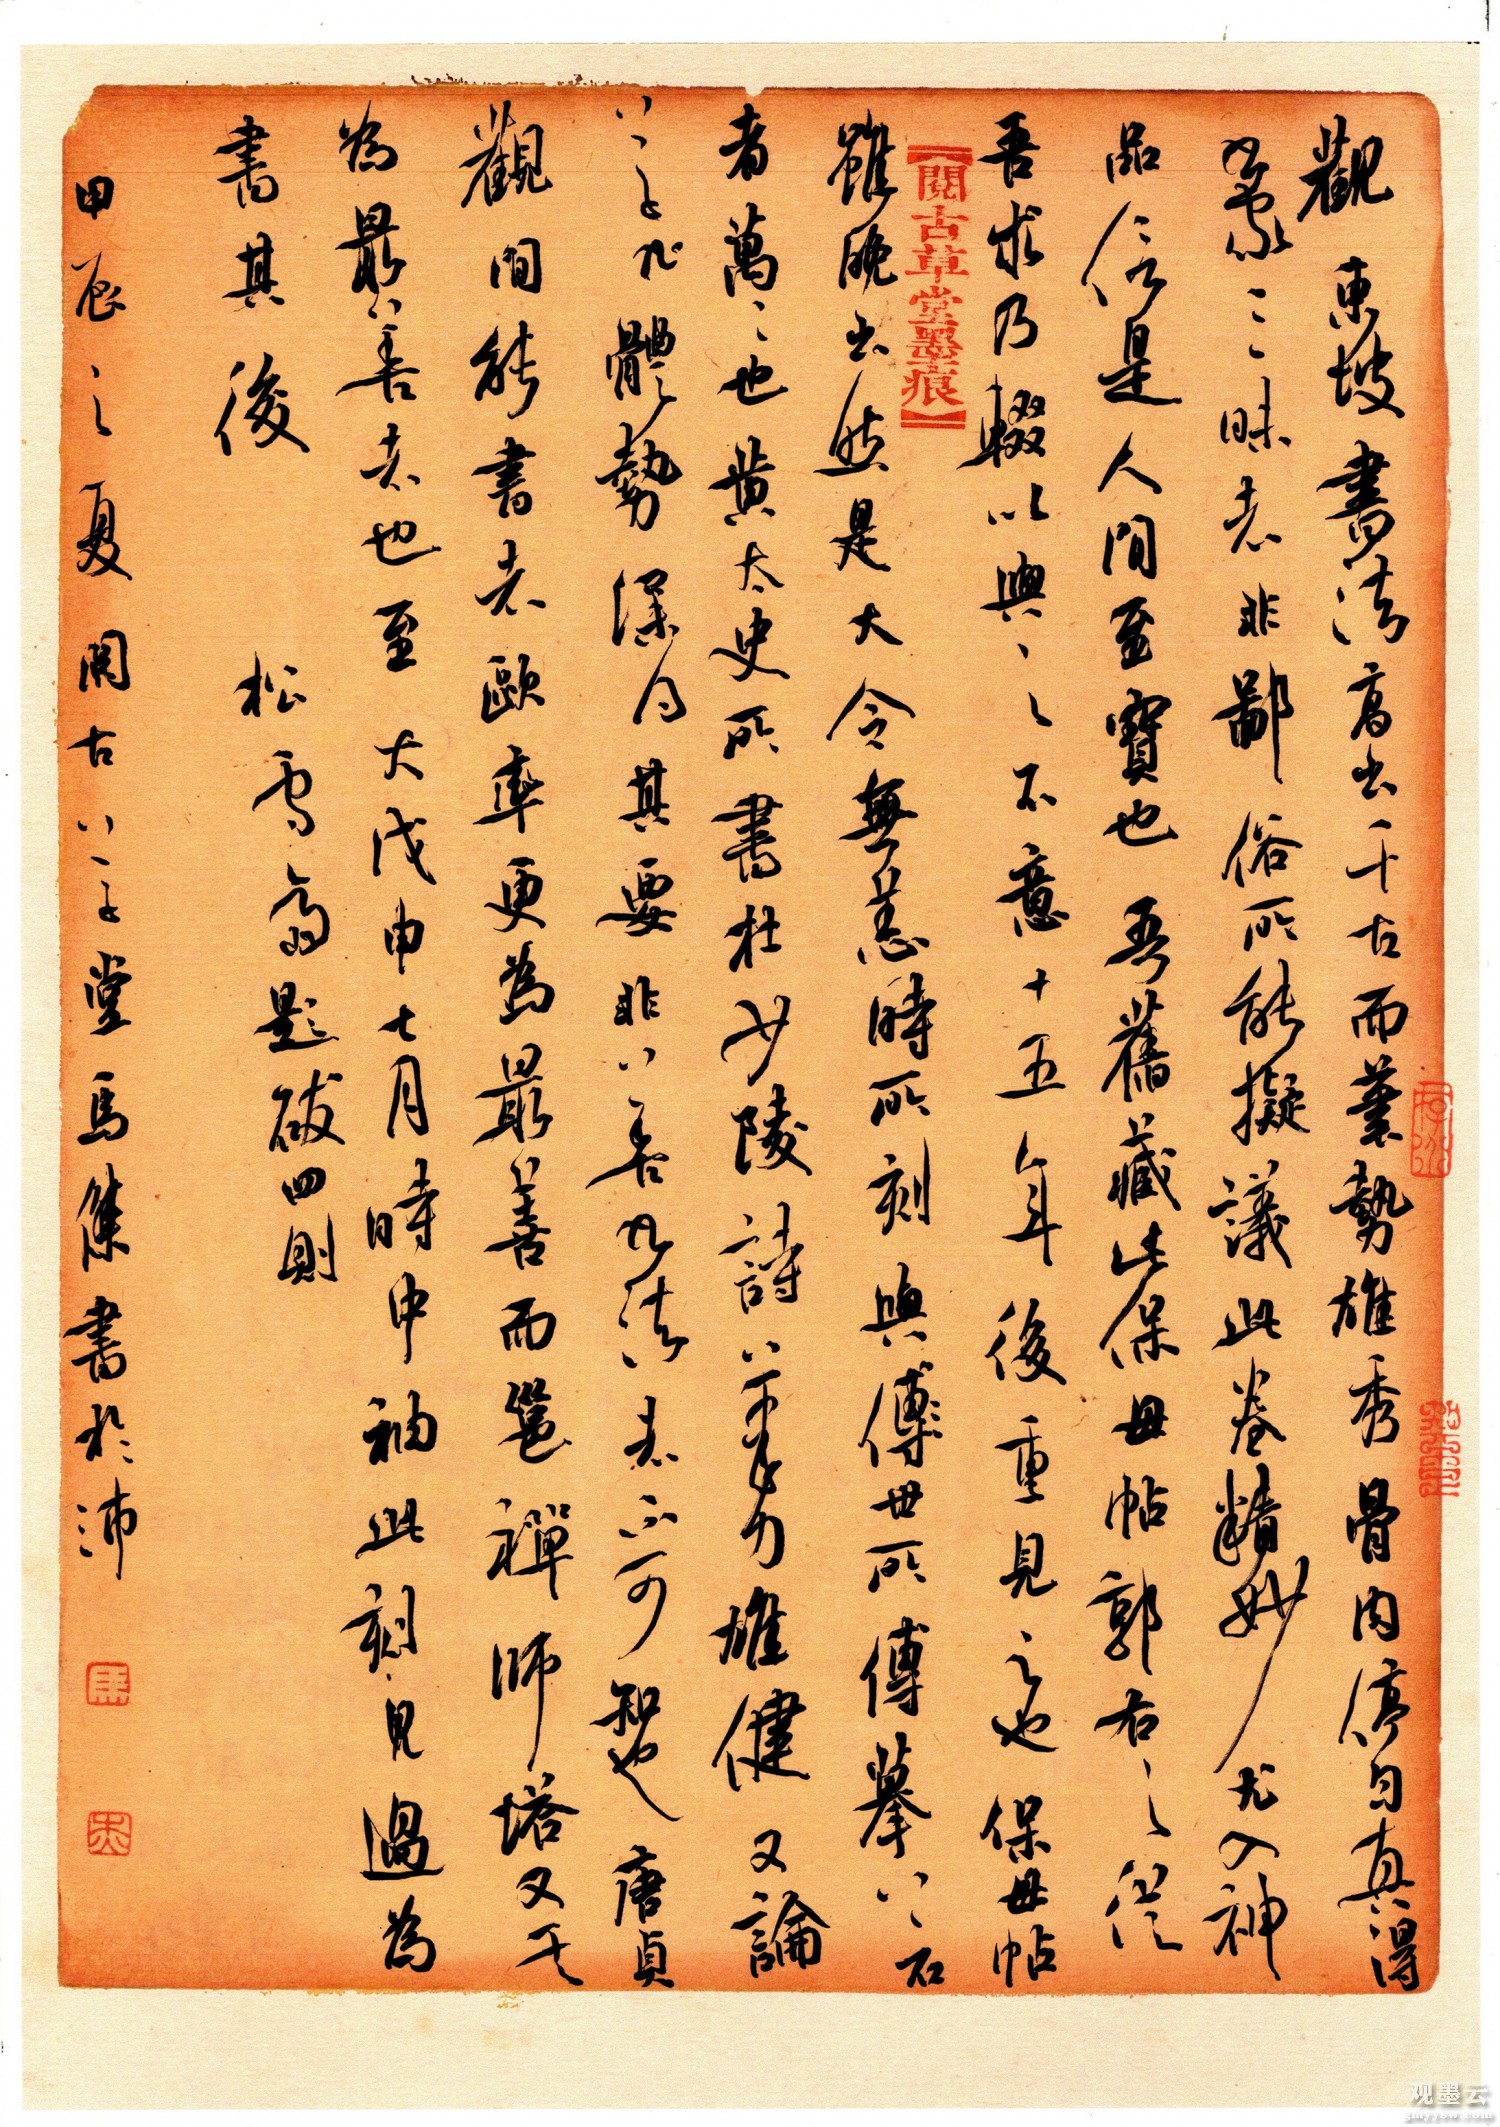 觀東坡書法高出千古而筆勢雄秀骨肉停勻真得
蒙三昧者非鄙俗所能擬議此卷精妙尤入神
品信是人間至寶也吾舊藏此保母帖郭右之從
吾求乃輟以與之不意十五年後重見之也保母帖
雖晚出然是大令無恙時所刻與傳世所傳摹之石
者萬萬也黃太史所書杜少陵詩筆力雄健又論
草體勢深得其要非善書法者不可智也唐貞
觀間能書者歐率更為最善而邕禪師塔又其
為最善者也至大戊申七月時中袖此刻見過為
書其後
松雪齋題跋四則
甲辰之夏閱古草堂馬集書於沛
閱古草堂墨痕
观墨云